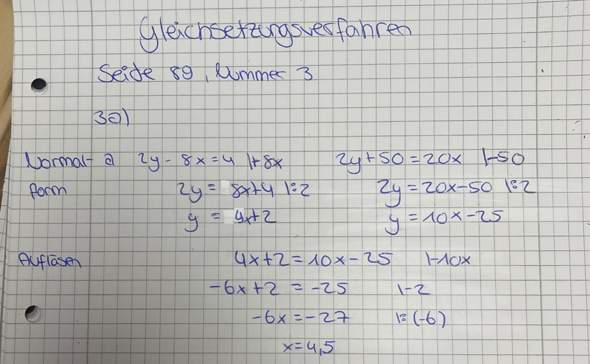 Gleichsetzungsverfahren
Seide 89, Nummer 3
3a)
Normal- a) 2y - 8x = 4 |+8x 2y + 50 = 20x |-50
form 2y = 8x+4 |:2 2y = 20x-50 |:2
y = 4x+2 y = 10x-25
Auflösen 4x+2 = 10x-25 |-10x
-6x+2 = -25 |-2
-6x = -27 |:(-6)
x = 4,5